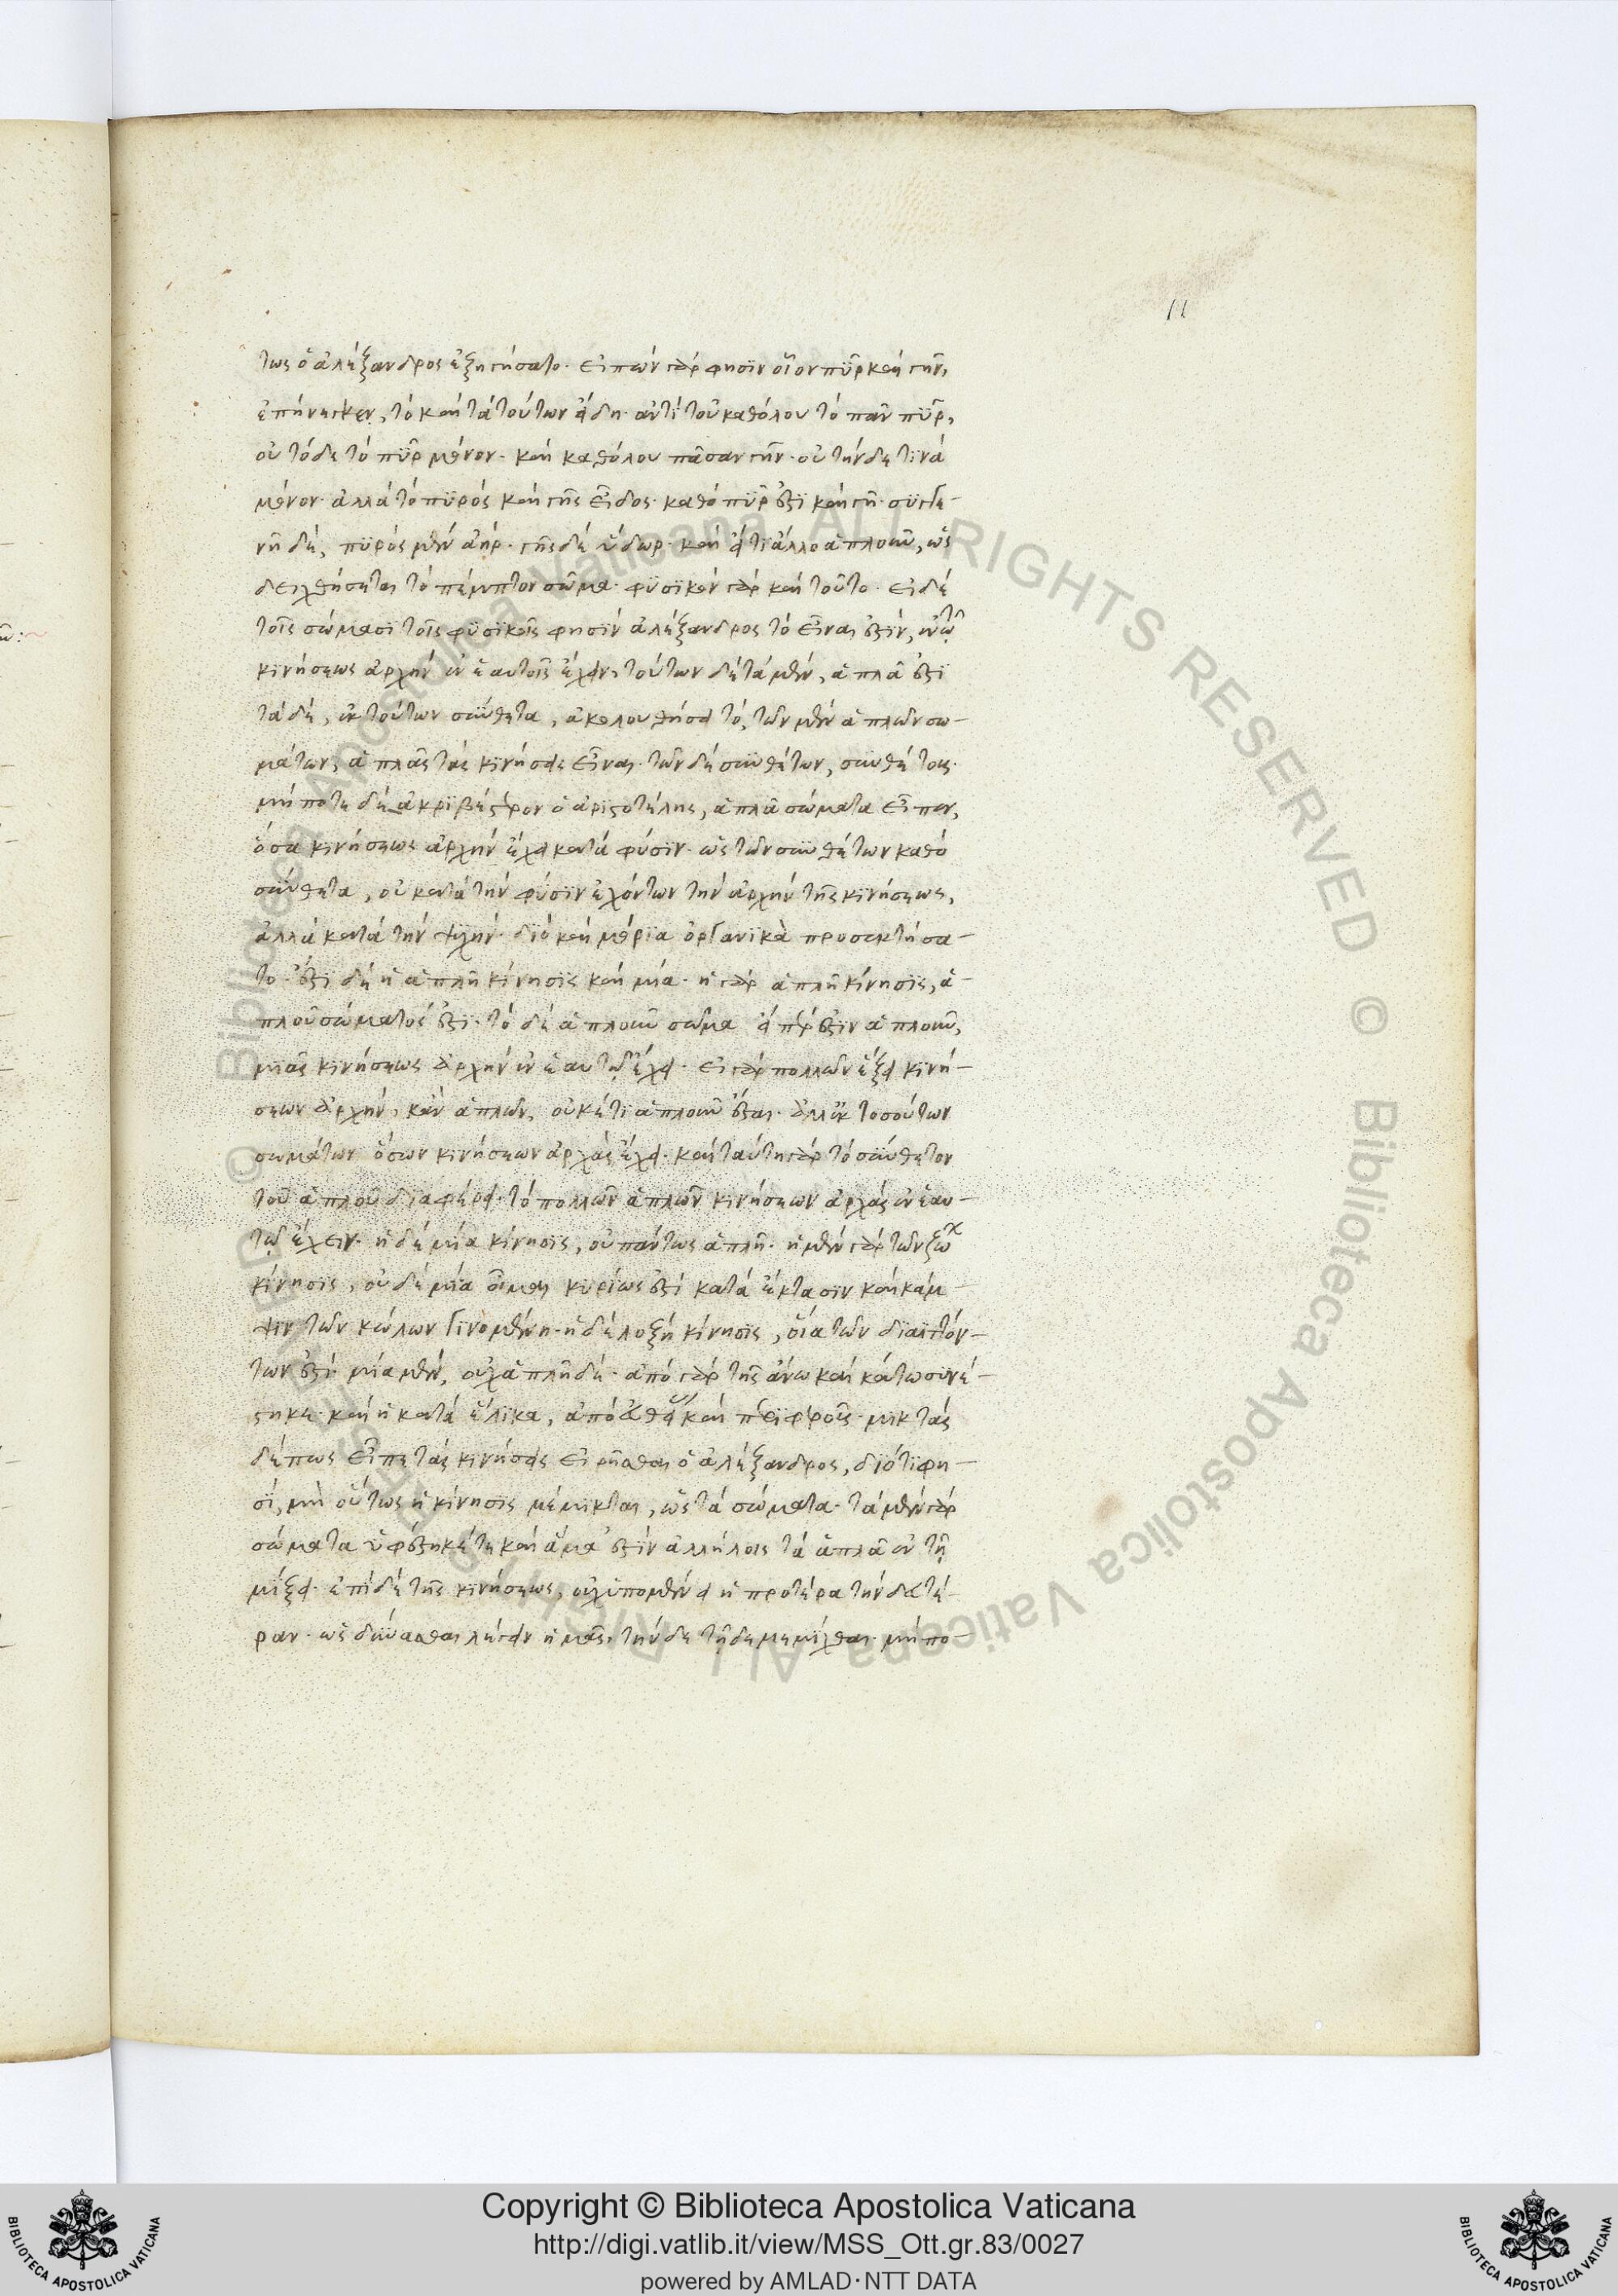 11
τως ὁ ἀλέξανδρος ἐξηγήσατο· εἰπών γάρ φησϊν οἷον πῦρ καὶ γῆν,
ἐπήνεγκεν, τό καὶ τά τούτων εἴδη· ἀντί τοῦ καθόλου τό πᾶν πῦρ,
οὐ τόδε τό πῦρ μόνον· καὶ καθόλου πᾶσαν γῆν· οὐ τήνδε τϊνά
μόνον· ἀλλά τό πϋρός καὶ γῆς εἶδος· καθό πῦρ ἐστϊ καὶ γῆ· συγγε-
νῆ δέ, πϋρός μέν ἀήρ· γῆς δέ ὕδωρ· καὶ εἴ τϊ ἄλλο ἁπλοῦν, ὡς
δειχθήσεται τό πέμπτον σῶμα· φϋσϊκόν γάρ καὶ τοῦτο· εἰ δέ
τοῖς σώμασϊ τοῖς φϋσϊκοῖς φησϊν ἀλέξανδρος τό εἶναι ἐστϊν, ἐν τῷ
κϊνήσεως ἀρχήν ἐν ἑαυτοῖς ἔχειν, τούτων δέ τά μέν, ἁπλᾶ ἐστϊ
τά δέ, ἐκ τούτων σύνθετα, ἀκολουθήσει τό, τῶν μέν ἁπλῶν σω-
μάτων, ἁπλᾶς τάς κϊνήσεις εἶναι· τῶν δέ συνθέτων, συνθέτους·
μήποτε δέ ἀκρϊβέστερον ὁ ἀρϊστοτέλης, ἁπλᾶ σώματα εἶπεν,
ὅσα κϊνήσεως ἀρχήν ἔχει κατά φύσϊν· ὡς τῶν συνθέτων καθό
σύνθετα, οὐ κατά τήν φύσϊν ἐχόντων τήν ἀρχήν τῆς κϊνήσεως,
ἀλλά κατά τήν ψϋχήν· δϊό καὶ μόρϊα ὀργανϊκὰ προσεκτήσα-
το· ἐστϊ δέ ἡ ἁπλῆ κίνησϊς καὶ μία· ἡ γάρ ἁπλῆ κίνησϊς, ἁ-
πλοῦ σώματός ἐστϊ· τό δέ ἁπλοῦν σῶμα εἴπερ ἐστϊν ἁπλοῦν,
μϊᾶς κϊνήσεως ἀρχήν ἐν ἑαυτῷ ἔχει· εἰ γάρ πολλῶν ἕξει κϊνή-
σεων ἀρχήν, κἄν ἁπλῶν, οὐκέτϊ ἁπλοῦν ἔσται· ἀλλ' ἐκ τοσούτων
σωμάτων ὅσων κϊνήσεων ἀρχάς ἔχει· καὶ ταύτη γάρ τό σύνθετον
τοῦ ἁπλοῦ δϊαφέρει· τό πολλῶν ἁπλῶν κϊνήσεων ἀρχάς ἐν ἑαυ-
τῷ ἔχειν· ἡ δέ μία κίνησϊς, οὐ πάντως ἁπλῆ· ἡ μέν γάρ τῶν ζώων
κίνησϊς, οὐδέ μία οἶμαι κϋρίως ἐστί κατά ἔκτασϊν καὶ κάμ-
ψϊν τῶν κώλων γϊνομένη· ἡ δέ λοξή κίνησϊς, οἵα τῶν δϊαϊττόν-
των ἐστί· μία μέν, οὐχ ἁπλῆ δέ· ἀπό γάρ τῆς ἄνω καὶ κάτω συνέ-
στηκε· καὶ ἡ κατά ἕλϊκα, ἀπό εὐθείας καὶ περϊφεροῦς· μϊκτάς
δέ πως εἶπε τάς κϊνήσεις εἰρῆσθαι ὁ ἀλέξανδρος, δϊότϊ φη-
σί, μή οὕτως ἡ κίνησϊς μέμϊκται, ὡς τά σώματα· τά μέν γάρ
σώματα ὑφέστηκέ τε καὶ ἅμα ἐστϊν ἀλλήλοις τά ἁπλᾶ ἐν τῇ
μίξει· ἐπί δέ τῆς κϊνήσεως, οὐχ ὑπομένει ἡ προτέρα τήν δευτέ-
ραν· ὡς δύνασθαι λέγειν ἡμᾶς, τήνδε τῇδε μεμίχθαι· μήπο-
Copyright © Biblioteca Apostolica Vaticana
http://digi.vatlib.it/view/MSS_Ott.gr.83/0027
powered by AMLAD·NTT DATA
BIBLIOTECA APOSTOLICA VATICANA
BIBLIOTECA APOSTOLICA VATICANA
© Biblioteca Apostolica Vaticana ALL RIGHTS RESERVED © Biblioteca Apostolica Vaticana ALL RIGHTS RESERVED